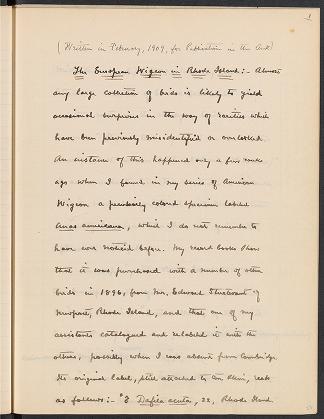 1
(Written in February, 1909, for Publication in the Auk)
The European Wigeon in Rhode Island:- Almost
any large collection of birds is likely to yield
occasional surprises in the way of rarities which
have been previously misidentified or overlooked.
An instance of this happened only a few weeks
ago when I found in my series of American
Wigeon a peculiarly colored specimen labeled
Anas americana, which I do not remember to
have ever noticed before. My record books show
that it was purchased with a number of other
birds in 1896, from Mr. Edward Sturtevant of
Newport, Rhode Island, and that one of my
assistants catalogued and relabeled it with the
others, possibly when I was absent from Cambridge.
Its original label, still attached to the skin, reads
as follows:- "♂ Dafila acuta, 22, Rhode Island